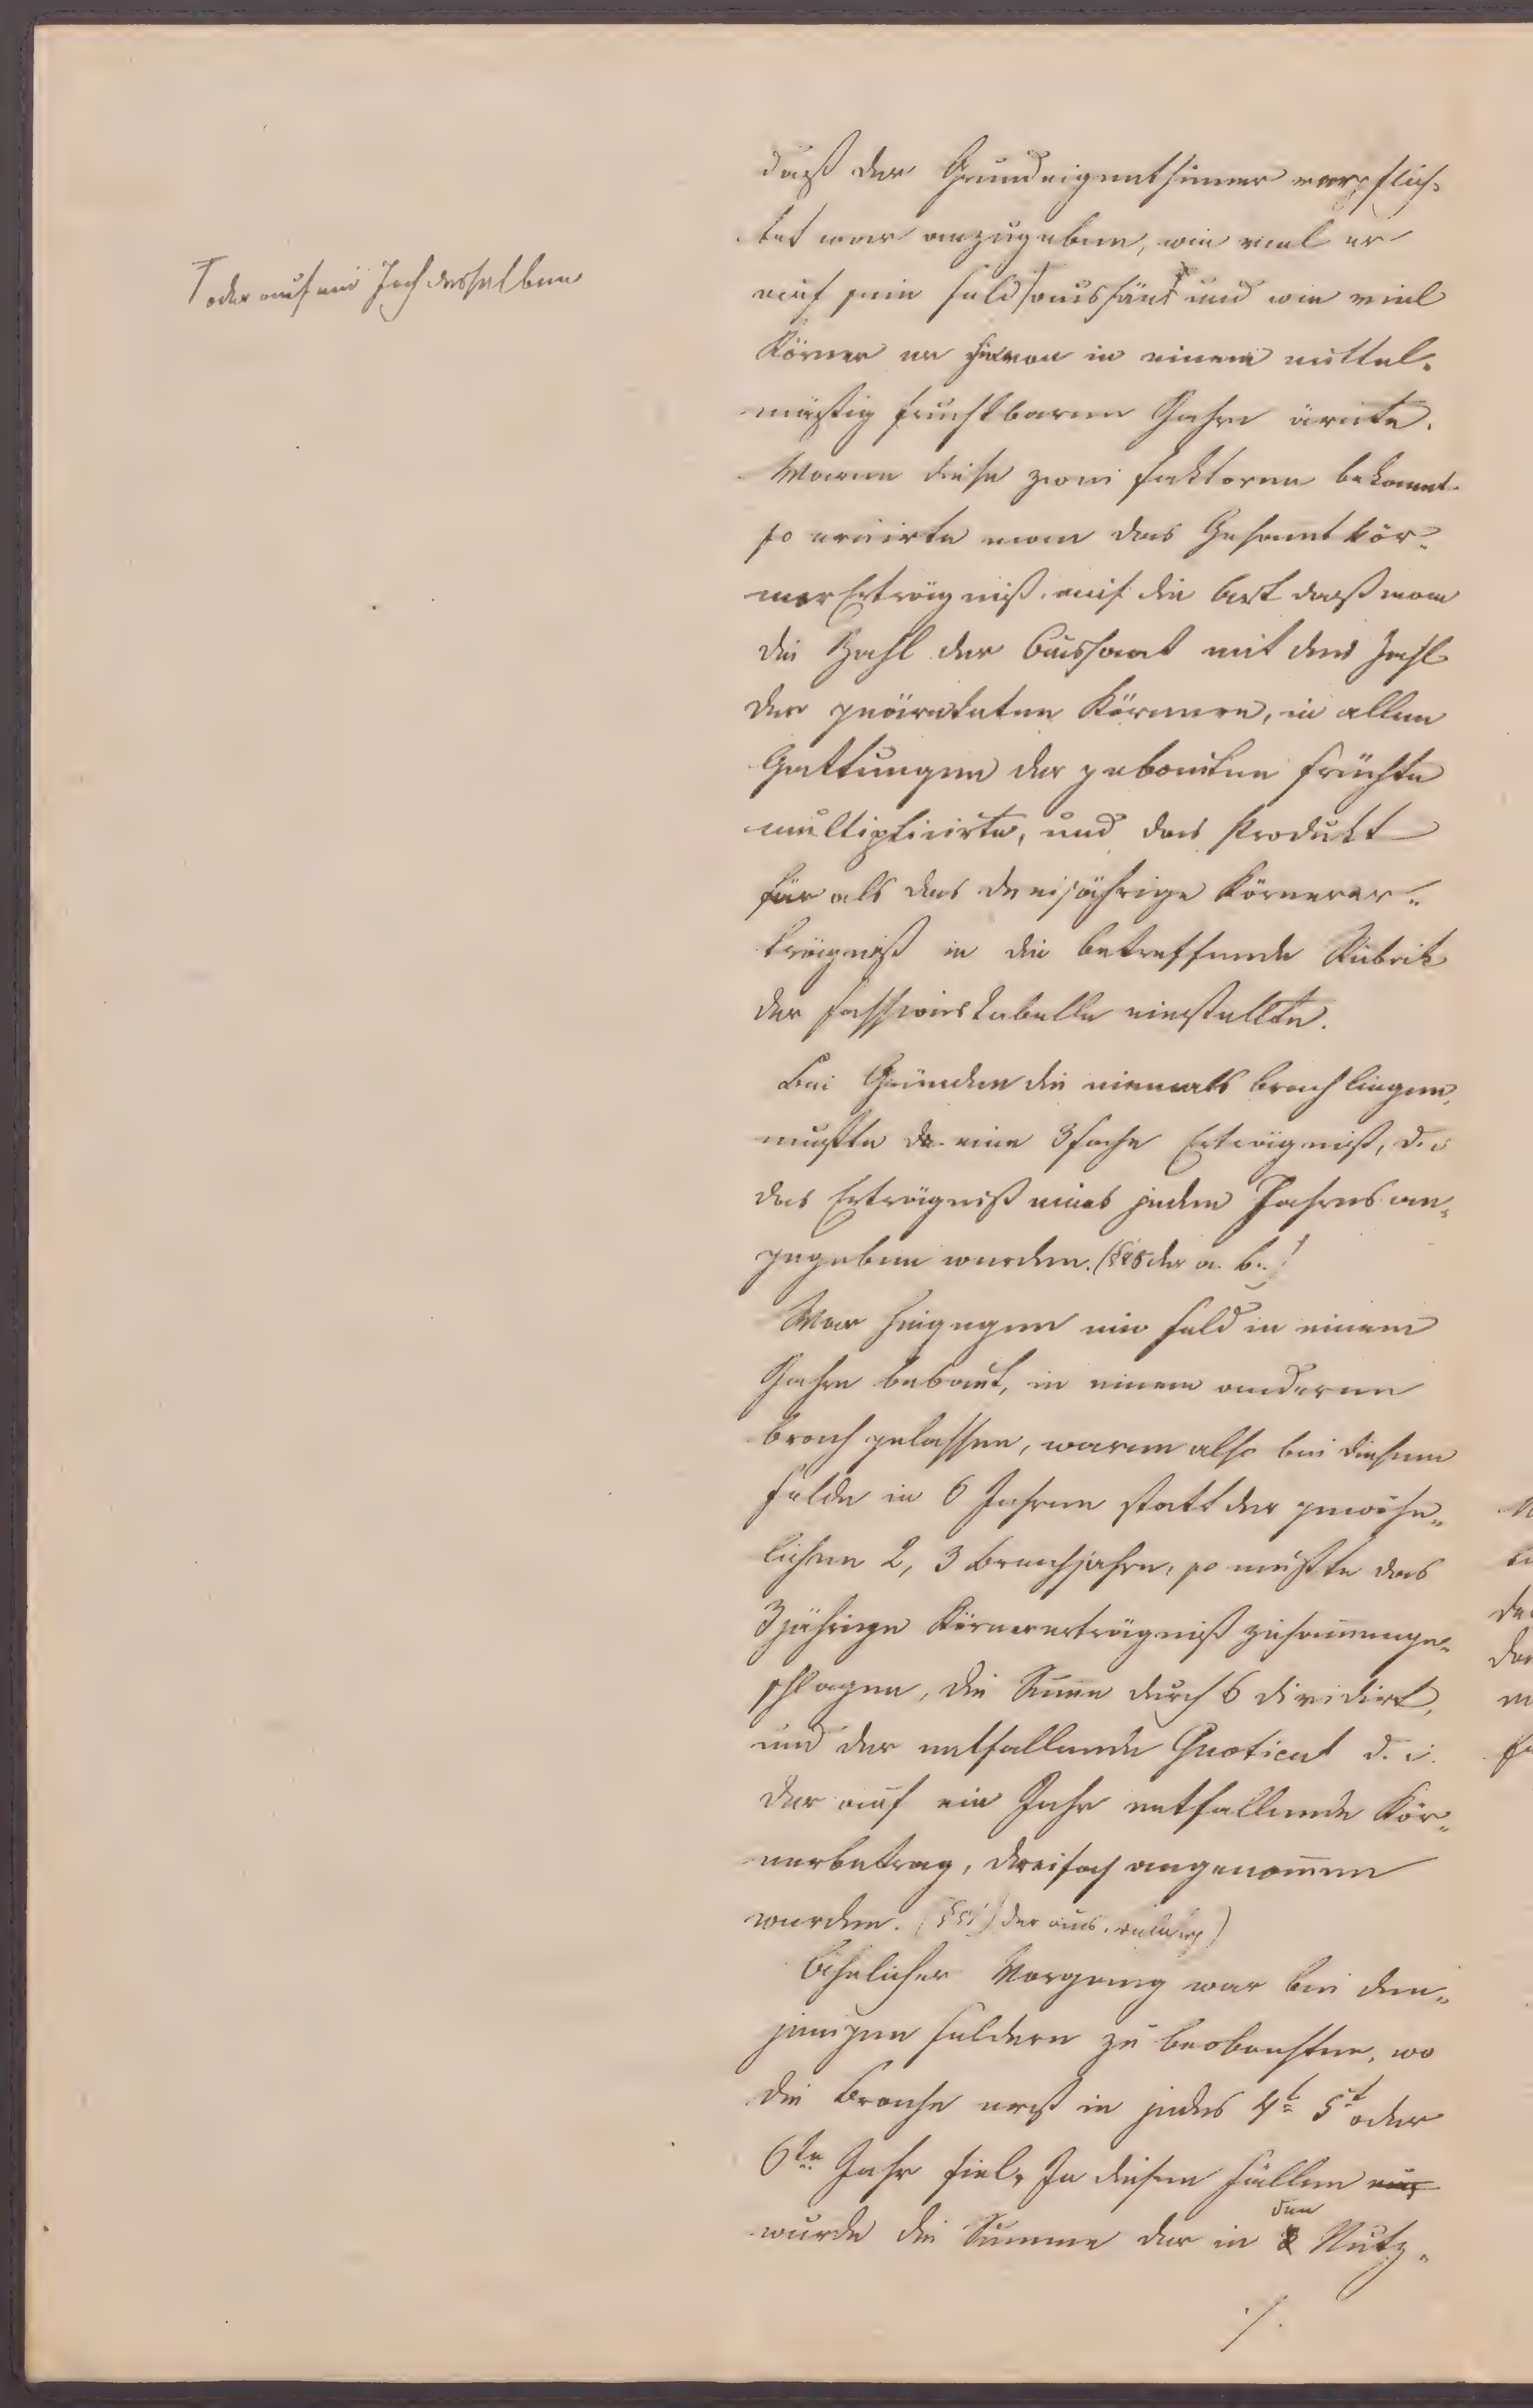 daß der Grundeigenthümer verpflich-
tet war anzugeben, wie viel er
⌈ oder auf ein Joch desselben
auf sein Feld ⌈ aussäet und wie viel
Körner er hievon in einem mittel-
mäßig fruchtbaren Jahre ärnte.
Waren diese zwei Faktoren bekannt
so eruirte man das Gesammtkör-
ner Erträgniß auf die Art daß man
die Zahl der Aussaat mit der Zahl
der geärnteten Körner, in allen
Gattungen der gebauten Früchte
multiplicirte, und das Produkt
für als das dreijährige Körnerer-
trägniß in die betreffende Rubrik
der Fassionstabelle einstellte.
Bei Gründen die niemals brach liegen,
mußte da eine 3fache Erträgniß, d. i
das Erträgniß eines jeden Jahres an-
gegeben werden. der a. b.
War hingegen ein Feld in einem
Jahre bebaut, in einem anderen
brach gelassen, waren also bei diesem
Felde in 6 Jahren statt der gewöhn-
lichen 2, 3 Brachjahre, so mußte das
3jährige Körnererträgniß zusammenge-
schlagen, die Summe durch 6 dividirt,
und der entfallende Quotient d. i.
der auf ein Jahr entfallende Kör-
nerbetrag, dreifach angenommen
werden.
Ähnlicher Vorgang war bei den-
jenigen Feldern zu beobachten, wo
die Brache erst in jedes 4t 5t oder
6te Jahr fiel. In diesen Fällen
wurde die Summe der in den Nutz-
./.